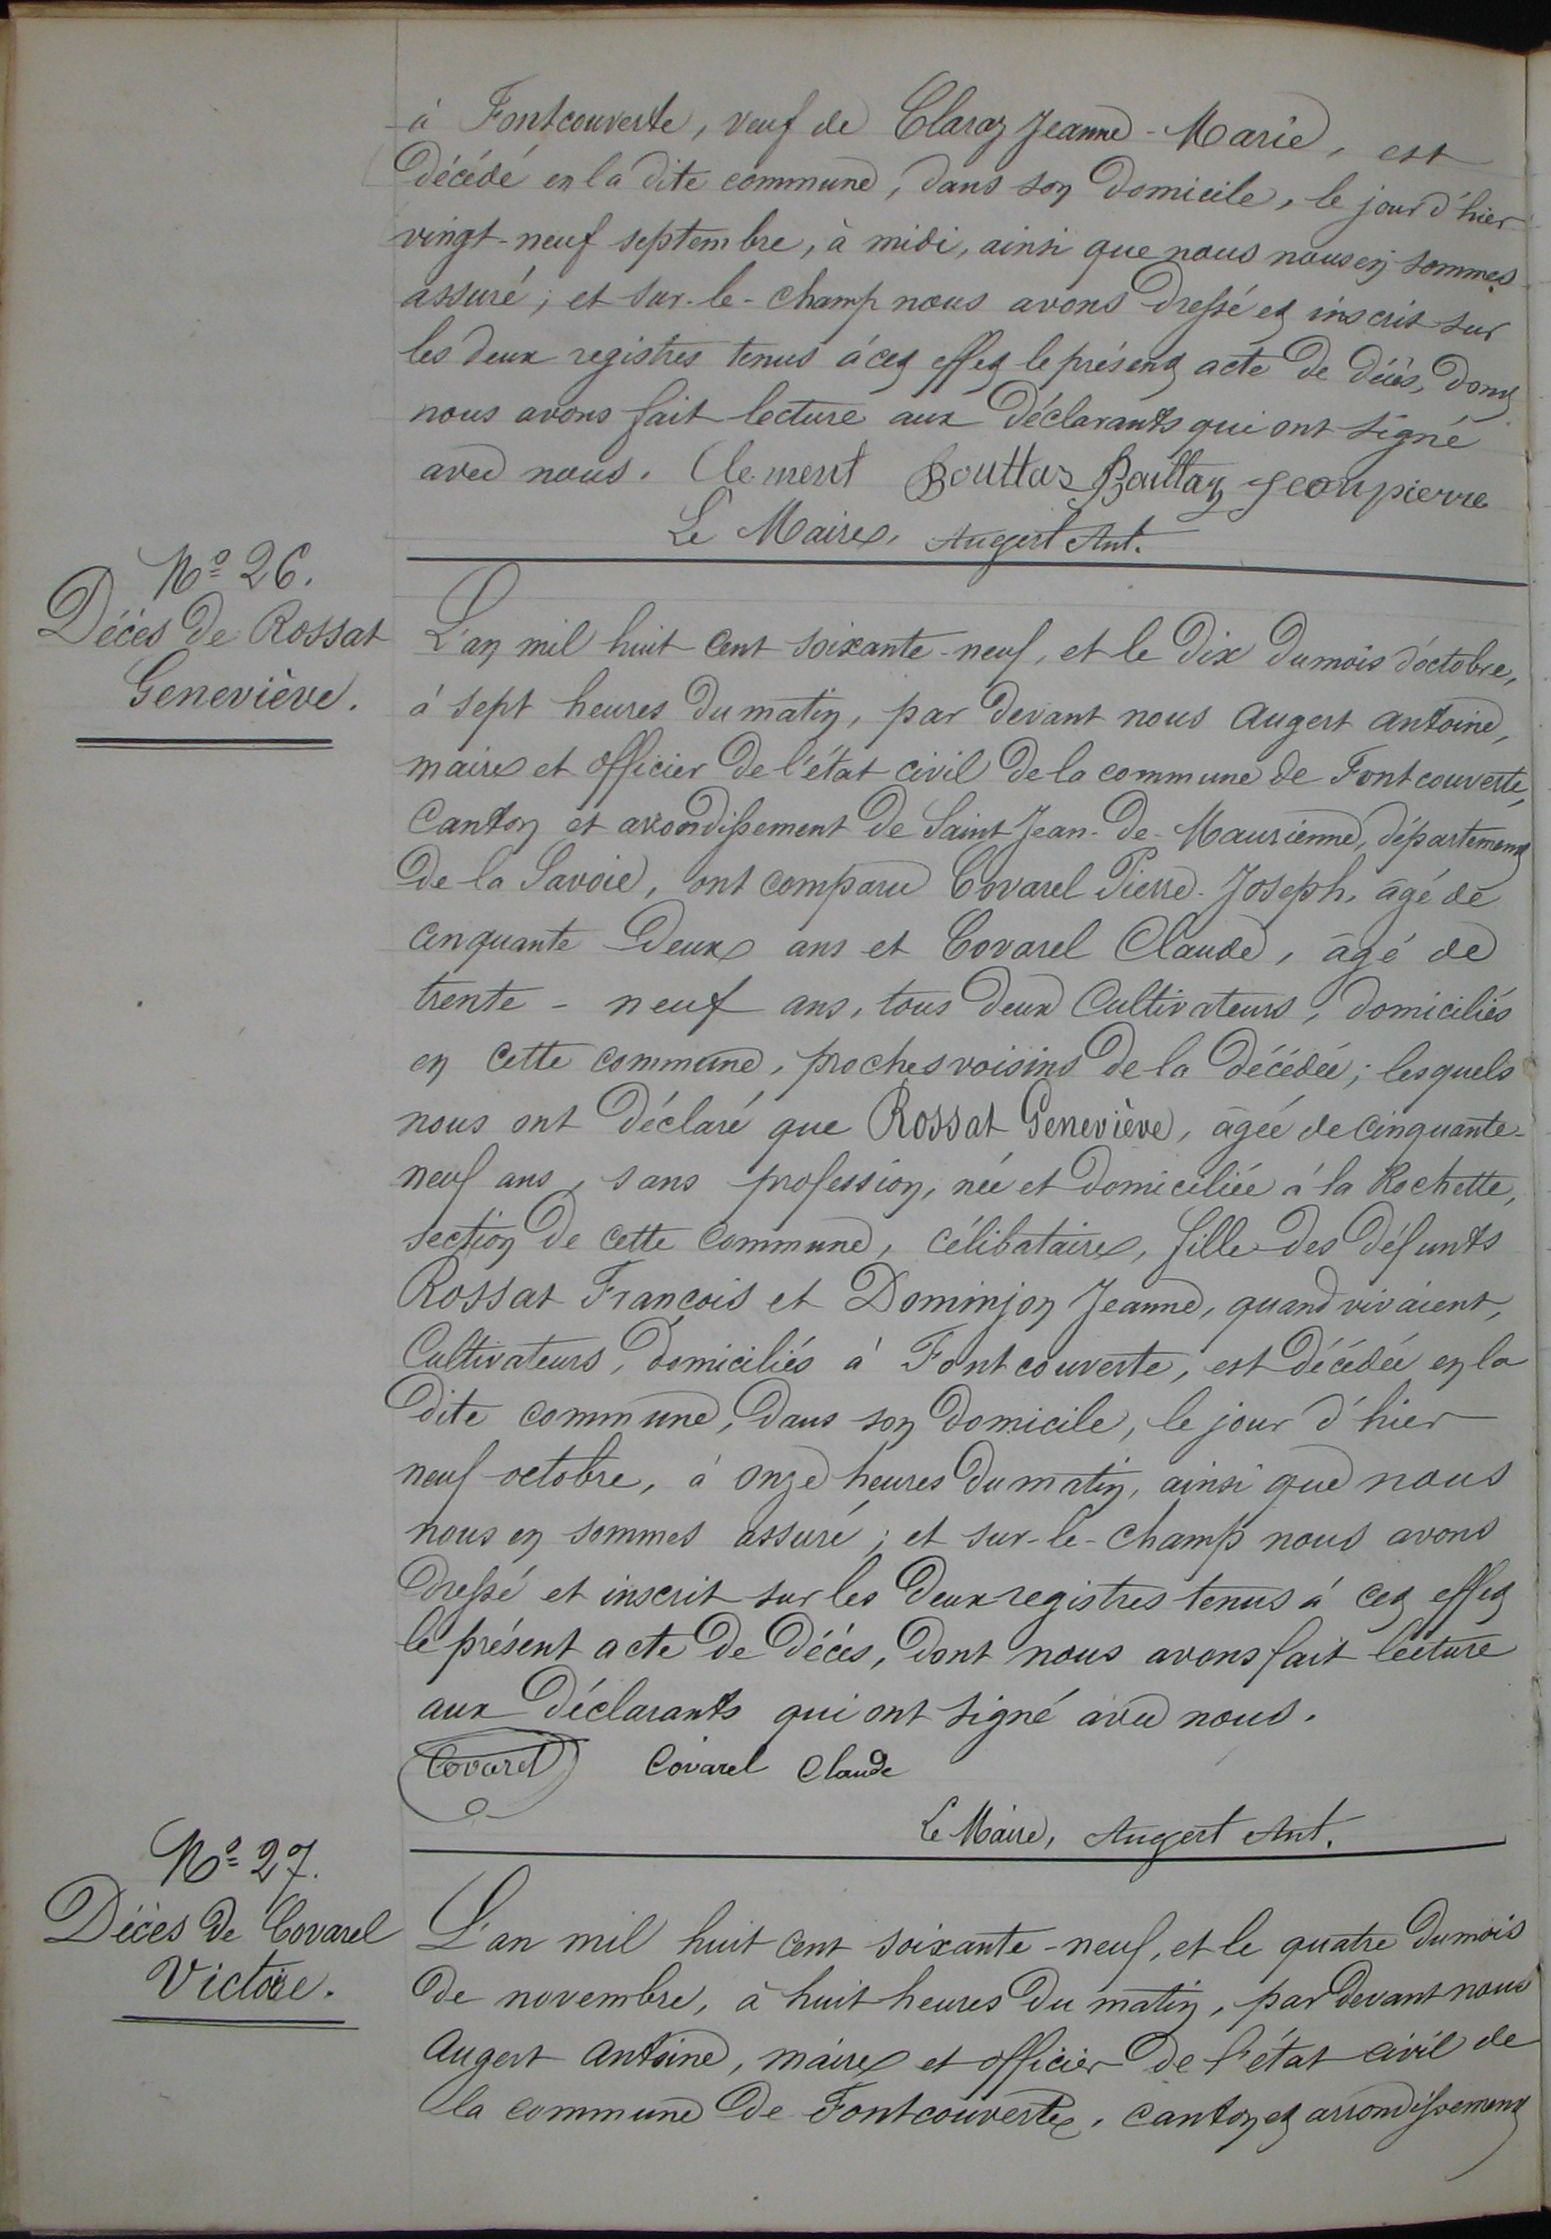 à Fontcouverte, veuf de Claraz Jeanne-Marie, est
décédé en la dite commune, dans son domicile, le jour d'hier
vingt-neuf septembre, à midi, ainsi que nous nous en sommes
assuré; et sur-le-champ nous avons dressé et inscrit sur
les deux registres tenus à cet effet le présent acte de décès, dont
nous avons fait lecture aux déclarants qui ont signé
avec nous. Clement Bouttaz Bouttaz Jeanpierre
Le Maire, Augert Ant.
Nº 26.
Décès de Rossat
Geneviève.
L'an mil huit cent soixante-neuf, et le dix du mois d'octobre,
à sept heures du matin, par devant nous Augert Antoine,
maire et officier de l'état civil de la commune de Fontcouverte,
Canton et arrondissement de Saint Jean-de-Maurienne, département
de la Savoie, ont comparu Covarel Pierre-Joseph, âgé de
cinquante deux ans et Covarel Claude, âgé de
trente-neuf ans, tous deux Cultivateurs, domiciliés
en cette commune, proches voisins de la décédée; lesquels
nous ont déclaré que Rossat Geneviève, âgée de cinquante-
neuf ans, sans profession, née et domiciliée à la Rochette,
section de cette commune, célibataire, fille des défunts
Rossat François et Dominjon Jeanne, quand vivaient,
Cultivateurs, domiciliés à Fontcouverte, est décédée en la
dite commune, dans son domicile, le jour d'hier
neuf octobre, à onze heures du matin, ainsi que nous
nous en sommes assuré; et sur-le-champ nous avons
dressé et inscrit sur les deux registres tenus à cet effet
le présent acte de décès, dont nous avons fait lecture
aux déclarants qui ont signé avec nous.
Covarel Covarel Claude
Le Maire, Augert Ant.
Nº 27.
Décès de Covarel
Victoire.
L'an mil huit cent soixante-neuf, et le quatre du mois
de novembre, à huit heures du matin, par devant nous
Augert Antoine, maire et officier de l'état civil de
la commune de Fontcouverte, canton et arrondissement